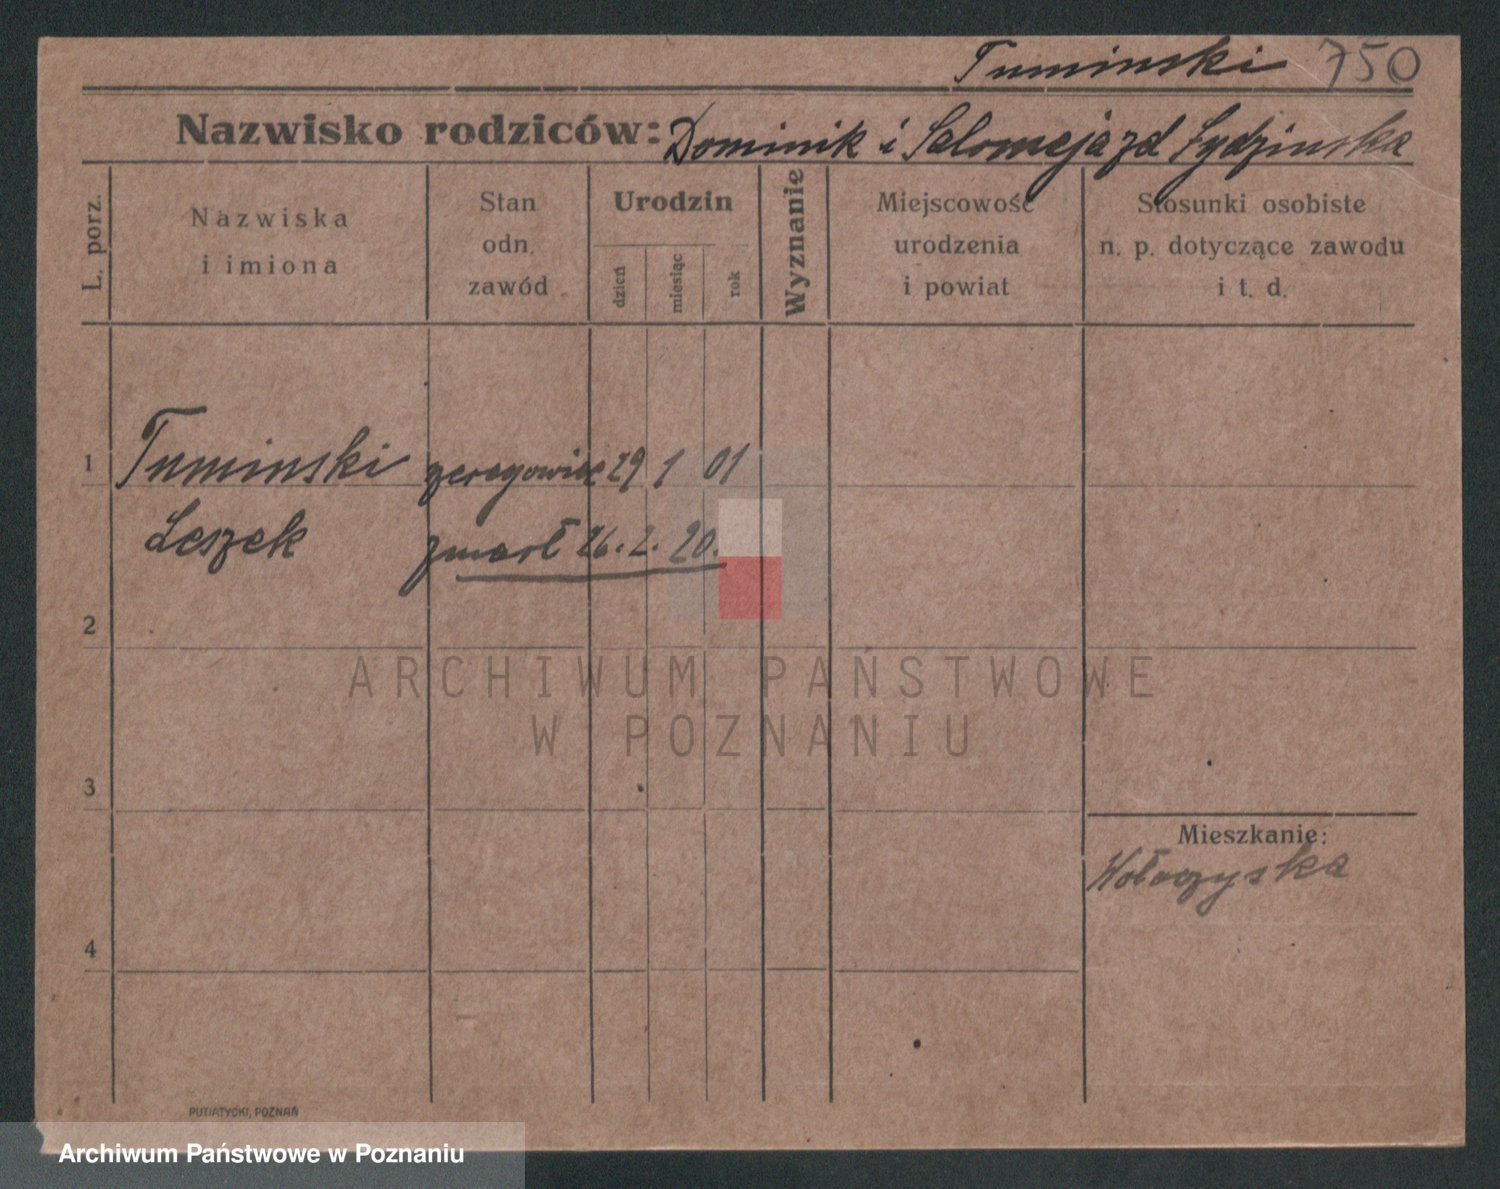 Tuminski 750
Nazwisko rodziców: Dominik i Salomeja zd Żydzinska
L. porz.
Nazwiska
i imiona
Stan
odn.
zawód
Urodzin
dzień
miesiąc
rok
Wyznanie
Miejscowość
urodzenia
i powiat
Stosunki osobiste
n. p. dotyczące zawodu
i t. d.
1 Tuminski szeregowiec 29 1 01
Leszek zmarł 26. 2. 20.
2
ARCHIWUM PAŃSTWOWE
W POZNANIU
3
Mieszkanie:
Wołoczyska
4
PUTIATYCKI, POZNAŃ
Archiwum Państwowe w Poznaniu